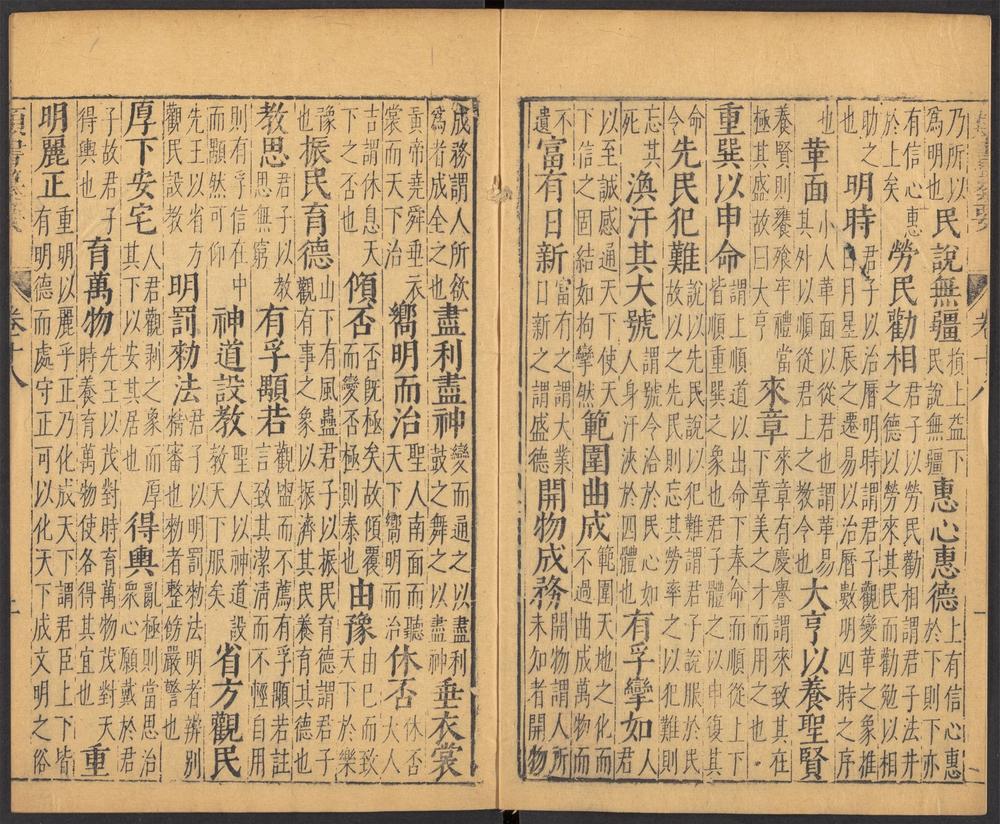 乃所以為明也民說無疆損上益下民說無疆惠心惠德上有信心惠於下則下亦
有信心惠於上矣勞民勸相君子以勞民勸相謂君子法井之德以勞來其民而勸勉以相
助之也明時君子以治曆明時謂君子觀變革之象推日月星辰之遷易以治曆數明四時之序
也革面小人革面以從君也謂革易其外以順從君上之教令也大亨以養聖賢
養賢則饔飧牢禮當極其盛故曰大亨來章來章有慶譽謂來致其在下章美之才而用之也
重巽以申命謂上順道以出命下奉命而順從上下皆順重巽之象也君子體之以申復其
命令先民犯難說以先民說以犯難謂君子說服於民故以之先民則忘其勞率之以犯難則
忘其死渙汗其大號謂號令洽於民心如人身汗浹於四體也有孚攣如人君
以至誠感通天下信之固結如拘攣然範圍曲成範圍天地之化而不過曲成萬物而
不遺富有日新富有之謂大業日新之謂盛德開物成務開物謂人所未知者開物
成務謂人所欲為者成全之也盡利盡神變而通之以盡利鼓之舞之以盡神垂衣裳
黃帝堯舜垂衣裳而天下治嚮明而治聖人南面而聽天下嚮明而治休否休否大人
吉謂休息天下之否也傾否否旣極矣故傾覆而變否極則泰也由豫由已而致天下於樂
豫也振民育德山下有風蠱君子以振民育德謂君子觀有事之象以振濟其民養育其德也
教思君子以教思無窮有孚顒若觀盥而不薦有孚顒若註言致其潔清而不輕自用
則有孚信在中而顒然可仰神道設教聖人以神道設教天下服矣省方觀民
先王以省方觀民設教明罰勑法君子以明罰勑法明者辨別精審也勑者整飭嚴警也
厚下安宅人君觀剥之象而厚其下以安其居也得輿亂極則當思治眾心願戴於君
子故君子得輿也育萬物先王以茂對時育萬物茂對天時養育萬物使各得其宜也重
明麗正重明以麗乎正乃化成天下謂君臣上下皆有明德而處守正可以化天下成文明之俗
卷十八